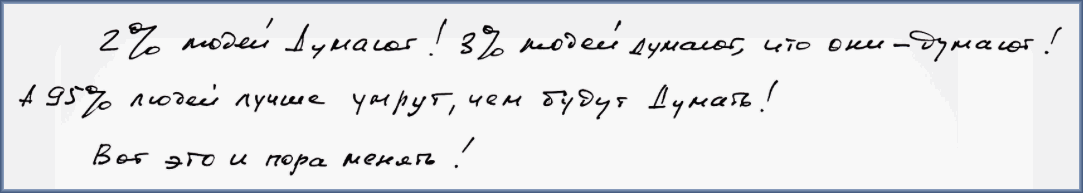 2% людей Думают! 3% людей думают, что они – думают!
А 95% людей лучше умрут, чем будут Думать!
Вот это и пора менять!